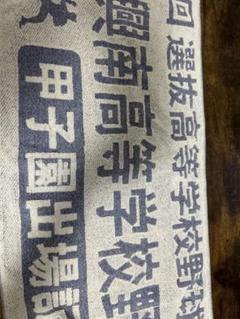 回 選抜高等学校野球
興南高等学校野
甲子園出場記